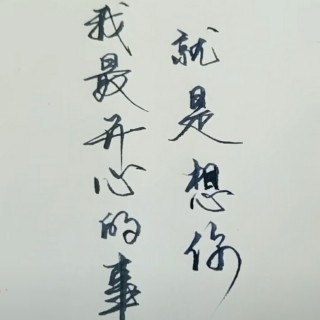 我最开心的事
就是想你